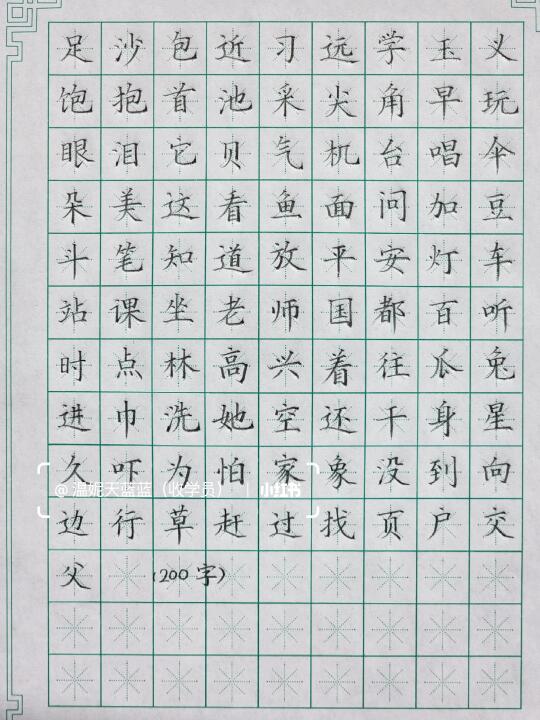 足沙包近习远学玉义
饱抱首池采尖角早玩
眼泪它贝气机台唱伞
朵美这看鱼面问加豆
斗笔知道放平安灯车
站课坐老师国都百听
时点林高兴着往瓜兔
进巾洗她空还干身星
久吓为怕家象没到向
@温妮天蓝蓝（收学员） | 小红书
边行草赶过找页户交
父 (200字)